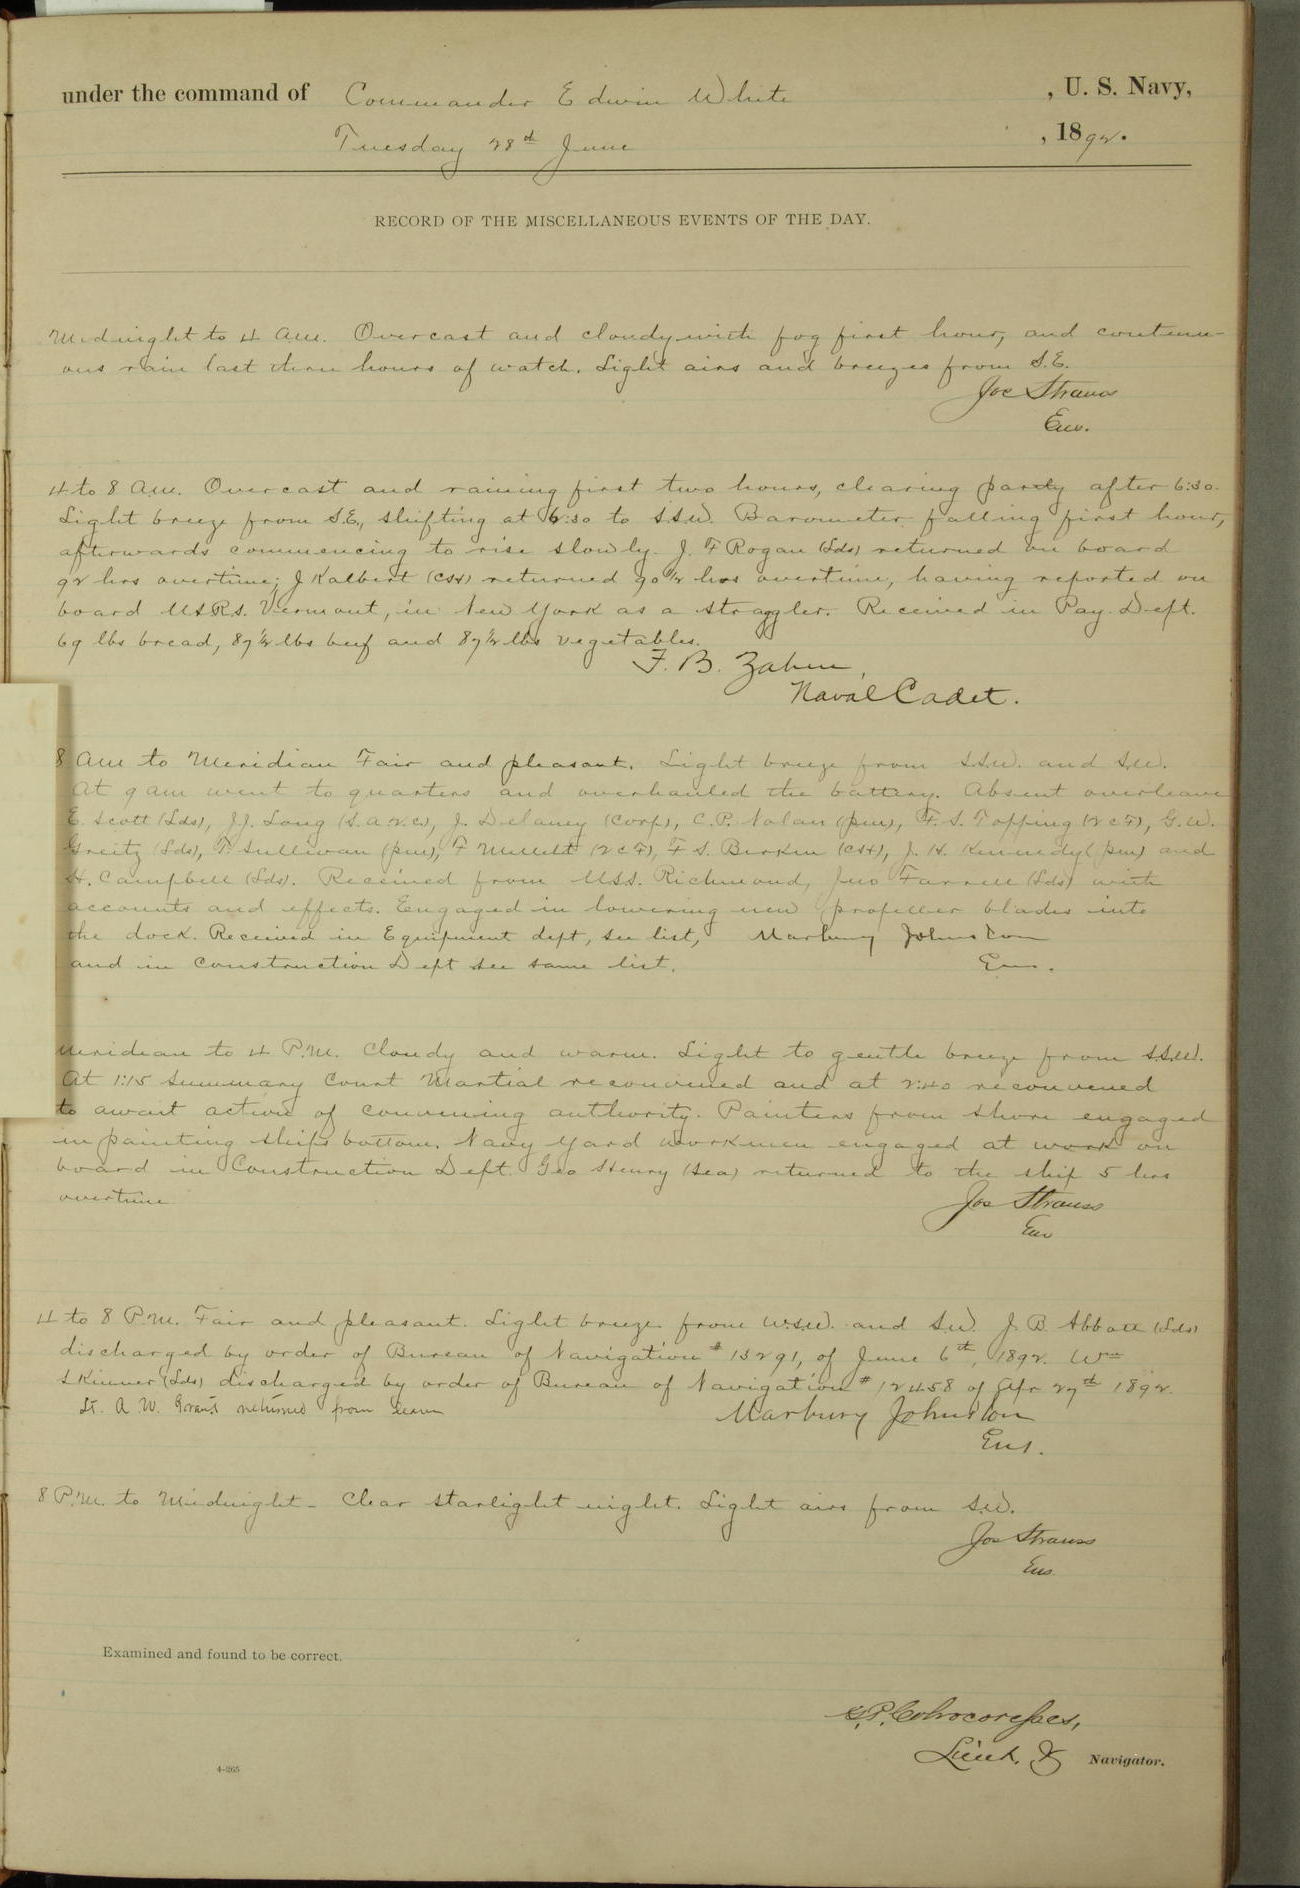 under the command of Commander Edwin White , U. S. Navy,
Tuesday 28th June , 1892.
RECORD OF THE MISCELLANEOUS EVENTS OF THE DAY.
Midnight to 4 am. Overcast and cloudy with fog first hour, and continu-
ous rain last three hours of watch. Light airs and breezes from S.E.
Joe Strauss
Ens.
4 to 8 a.m. Overcast and raining first two hours, clearing partly after 6:30.
Light breeze from S.E., shifting at 6:30 to S.S.W. Barometer falling first hour,
afterwards commencing to rise slowly. J. F Rogan (Lds) returned on board
92 hrs overtime; J Kalbert (CSH) returned 90 1/2 hrs overtime, having reported on
board U.S.R.S. Vermont, in New York as a straggler. Received in Pay Dept.
69 lbs bread, 87 1/2 lbs beef and 87 1/2 lbs vegetables.
F. B. Zahm,
Naval Cadet.
8 am to Meridian Fair and pleasant. Light breeze from S.S.W. and S.W.
At 9 am went to quarters and overhauled the battery. Absent overleave
E. Scott (Lds), J.J. Long (S.A.2.C), J. Delaney (Corp), C.P. Nolan (pm), F. S. Topping (2 c F), G.W.
(Lds), T. Sullivan (pm), F (2 c F), F S. (CSH), J. H. Kennedy (pm) and
H. Campbell (Lds). Received from U.S.S. Richmond, Jno Farrell (Lds) with
accounts and effects. Engaged in lowering new propeller blades into
the dock. Received in Equipment dept, see list, Marbury Johnston
and in Construction Dept see same list. Ens.
Meridian to 4 P.M. Cloudy and warm. Light to gentle breeze from S.S.W.
At 1:15 Summary Court Martial reconvened and at 2:40 reconvened
to await action of convening authority. Painters from shore engaged
in painting ships bottom. Navy Yard workmen engaged at work on
board in Construction Dept. Geo Henry (Sea) returned to the ship 5 hrs
overtime
Joe Strauss
Ens
4 to 8 P.M. Fair and pleasant. Light breeze from W.S.W. and S.W. J. B. Abbott (Lds)
discharged by order of Bureau of Navigation # 13291, of June 6th, 1892. Wm
Skinner (Lds) discharged by order of Bureau of Navigation # 12458 of Apr 27th 1892.
Lt. A. W. Grant returned from leave
Marbury Johnston
Ens.
8 P.M. to Midnight - Clear starlight night. Light airs from S.W.
Joe Strauss
Ens.
Examined and found to be correct.
G. P. Colvocoresses,
Lieut. & Navigator.
4-265